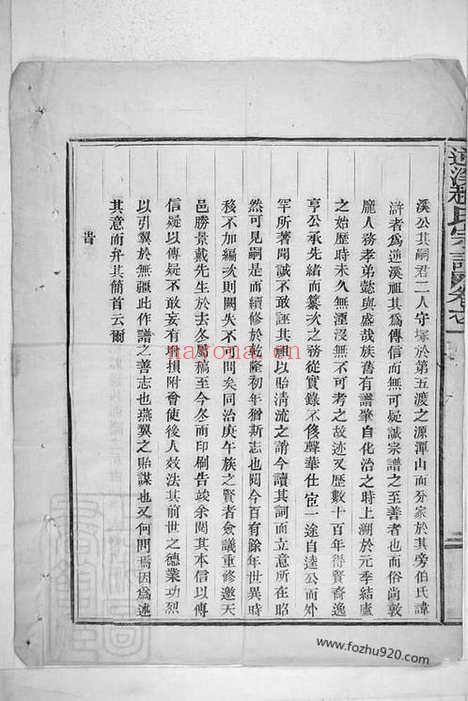 溪公其嗣君二人守塚於第五渡之源潭山而芬家於其旁伯氏諱
滸者為遊溪祖其為傳信而無可疑誠宗譜之至善者也而俗尚敦
龐人務孝弟懿與盛哉族舊有譜肇自化治之時上溯於元季結廬
之始歷時未久無湮沒無不可考之故迹又歷數十百年得賢裔逸
亨公承先緒而纂次之務從實錄不侈聲華仕宦一途自逵公而外
罕所著聞誠不敢誣其祖以貽清流之誚今讀其詞而立意所在昭
然可見嗣是而續修於乾隆初年猶斯志也閱今百有餘年世異時
移不加編次則闕失不可問矣同治庚午族之賢者僉議重修邀天
邑勝景戴先生於去冬屬稿至今冬而印刷告竣余閱其本信以傳
信疑以傳疑不敢妄有增損附會使後人效法其前世之德業功烈
以引翼於無疆此作譜之善志也燕翼之貽謀也又何間焉因為述
其意而弁其簡首云爾
旹
氏宗譜 卷之一
nayona.cn
www.fozhu920.com